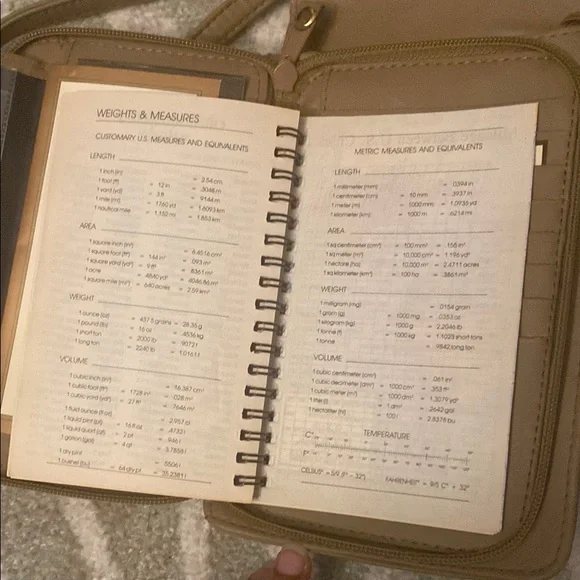 WEIGHTS & MEASURES
CUSTOMARY U.S. MEASURES AND EQUIVALENTS
LENGTH
1 inch (in) = 2.54 cm
1 foot (ft) = 12 in = .3048 m
1 yard (yd) = 3 ft = .9144 m
1 mile (mi) = 1760 yd = 1.6093 km
1 nautical mile = 1.152 mi = 1.853 km
AREA
1 square inch (in²) = 6.4516 cm²
1 square foot (ft²) = 144 in² = .093 m²
1 square yard (yd²) = 9 ft² = .8361 m²
1 acre = 4840 yd² = 4046.86 m²
1 square mile (mi²) = 640 acres = 2.59 km²
WEIGHT
1 ounce (oz) = 437.5 grains = 28.35 g
1 pound (lb) = 16 oz = .4536 kg
1 short ton = 2000 lb = .9072 t
1 long ton = 2240 lb = 1.0161 t
VOLUME
1 cubic inch (in³) = 16.387 cm³
1 cubic foot (ft³) = 1728 in³ = .028 m³
1 cubic yard (yd³) = 27 ft³ = .7646 m³
1 fluid ounce (fl oz) = 2.957 cl
1 liquid pint (pt) = 16 fl oz = .4732 l
1 liquid quart (qt) = 2 pt = .946 l
1 gallon (gal) = 4 qt = 3.7858 l
1 dry pint = .5506 l
1 bushel (bu) = 64 dry pt = 35.2381 l
METRIC MEASURES AND EQUIVALENTS
LENGTH
1 millimeter (mm) = .0394 in
1 centimeter (cm) = 10 mm = .3937 in
1 meter (m) = 1000 mm = 1.0936 yd
1 kilometer (km) = 1000 m = .6214 mi
AREA
1 sq centimeter (cm²) = 100 mm² = .155 in²
1 sq meter (m²) = 10,000 cm² = 1.196 yd²
1 hectare (ha) = 10,000 m² = 2.4711 acres
1 sq kilometer (km²) = 100 ha = .3861 mi²
WEIGHT
1 milligram (mg) = .0154 grain
1 gram (g) = 1000 mg = .0353 oz
1 kilogram (kg) = 1000 g = 2.2046 lb
1 tonne (t) = 1000 kg = 1.1023 short tons
1 tonne = .9842 long ton
VOLUME
1 cubic centimeter (cm³) = .061 in³
1 cubic decimeter (dm³) = 1000 cm³ = .353 ft³
1 cubic meter (m³) = 1000 dm³ = 1.3079 yd³
1 liter (l) = 1 dm³ = .2642 gal
1 hectoliter (hl) = 100 l = 2.8378 bu
TEMPERATURE
C°
F°
CELSIUS° = 5/9 (F° - 32°) FAHRENHEIT° = 9/5 C° + 32°